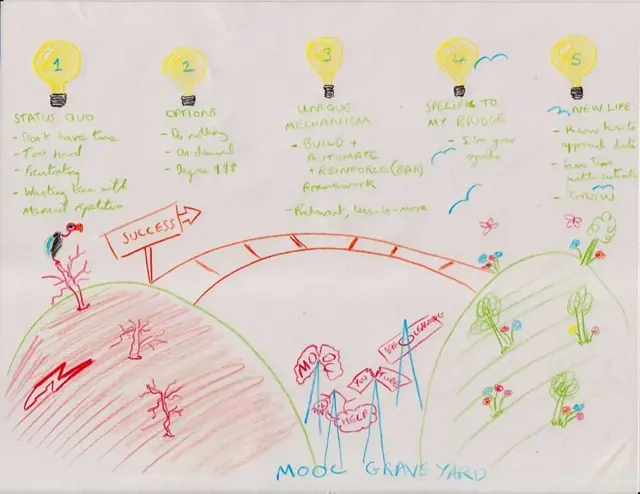 1
STATUS QUO
- Don't have time
- Too hard
- Frustrating
- Wasting time with
Manual repetition
2
OPTIONS
- Do nothing
- On demand
- Degree $$$
3
UNIQUE
MECHANISM
- BUILD +
AUTOMATE
+ REINFORCE (BAR)
framework
- Relevant, less-is-more
4
SPECIFIC TO
MY BRIDGE
- I'm your
guide
5
NEW LIFE
- Know how to
approach data
- Save Time
with
- GROW
SUCCESS
MOOC
YOU TUBE
HELP
MOOC GRAVEYARD